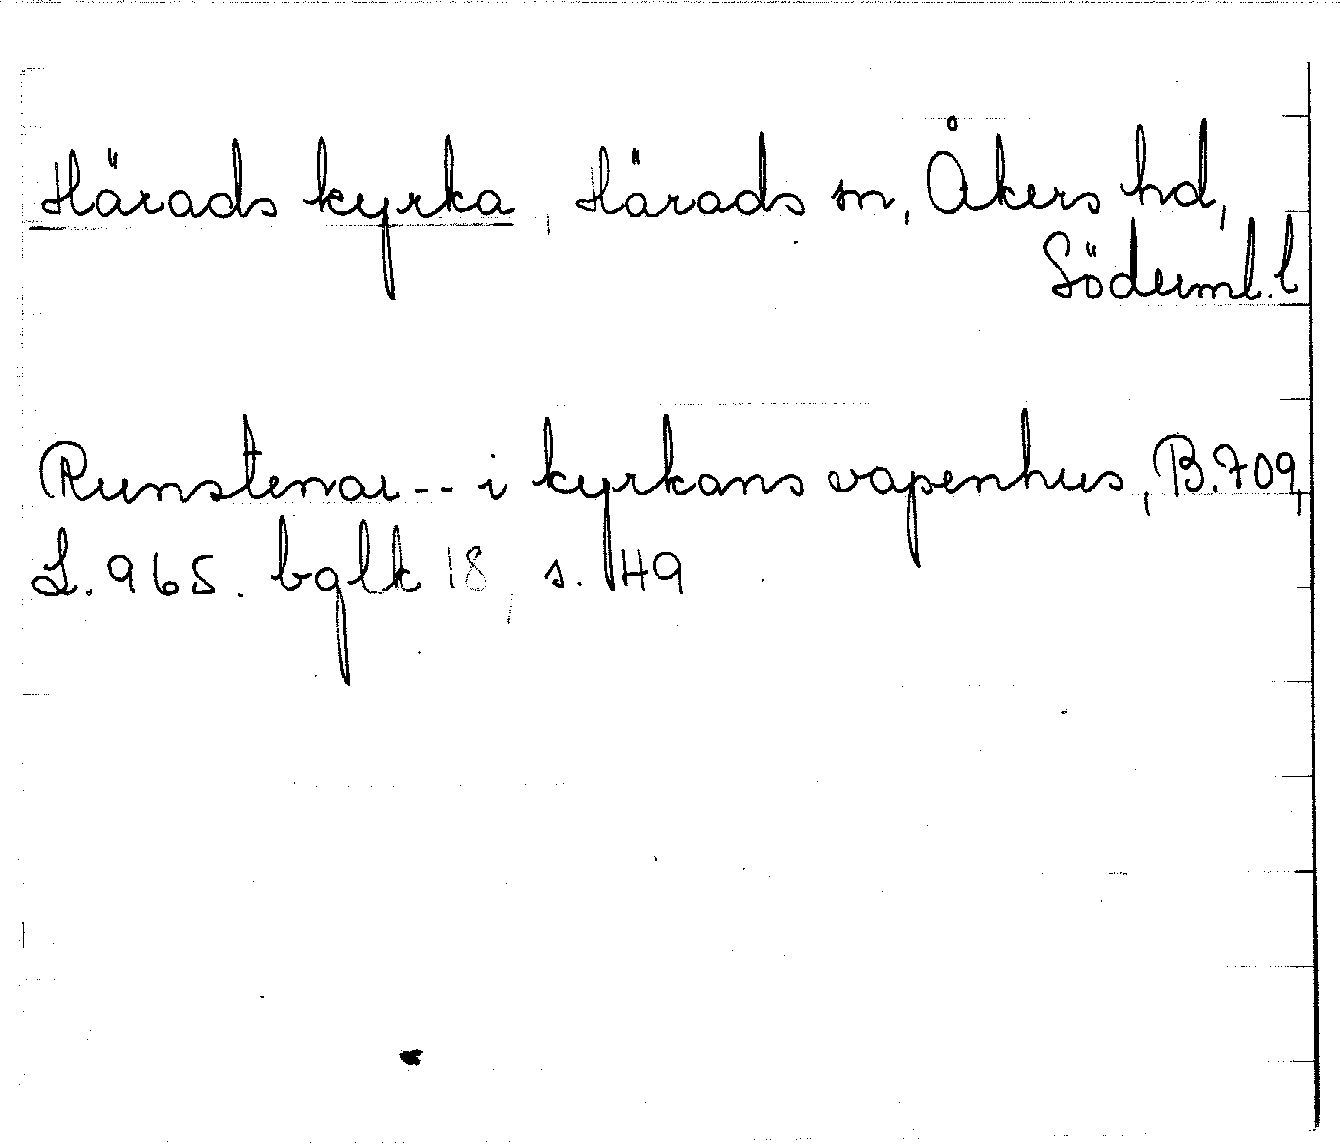 Härads kyrka, Härads sn, Åkers hd,
Söderml. l
Runstenar -- i kyrkans vapenhus, B. 709,
L. 965. bglk 18, s. 149